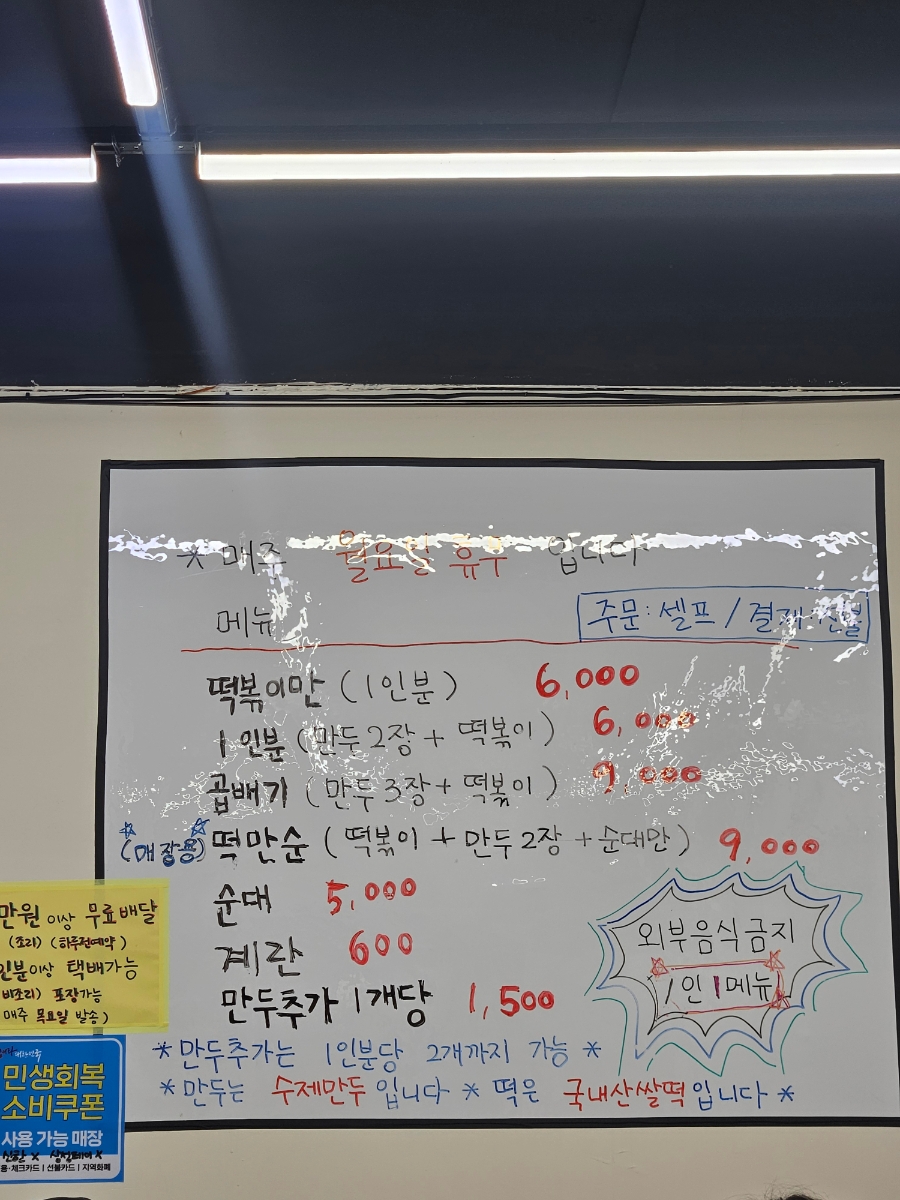 * 매주 월요일 휴무 입니다.
메뉴
주문:셀프 / 결제:선불
떡볶이만 (1인분) 6,000
1인분 (만두2장 + 떡볶이) 6,000
곱배기 (만두3장 + 떡볶이) 7,000
(매장용) 떡만순 (떡볶이 + 만두2장 + 순대만) 9,000
순대 5,000
계란 600
만두추가 1개당 1,500
외부음식금지
1인1메뉴
*만두추가는 1인분당 2개까지 가능 *
*만두는 수제만두입니다 * 떡은 국내산쌀떡입니다 *
만원 이상 무료배달
(조리) (하루전예약)
인분이상 택배가능
비조리) 포장가능
매주 목요일 발송)
민생회복
소비쿠폰
사용 가능 매장
신한 x 삼성페이 x
용·체크카드 | 선불카드 | 지역화폐